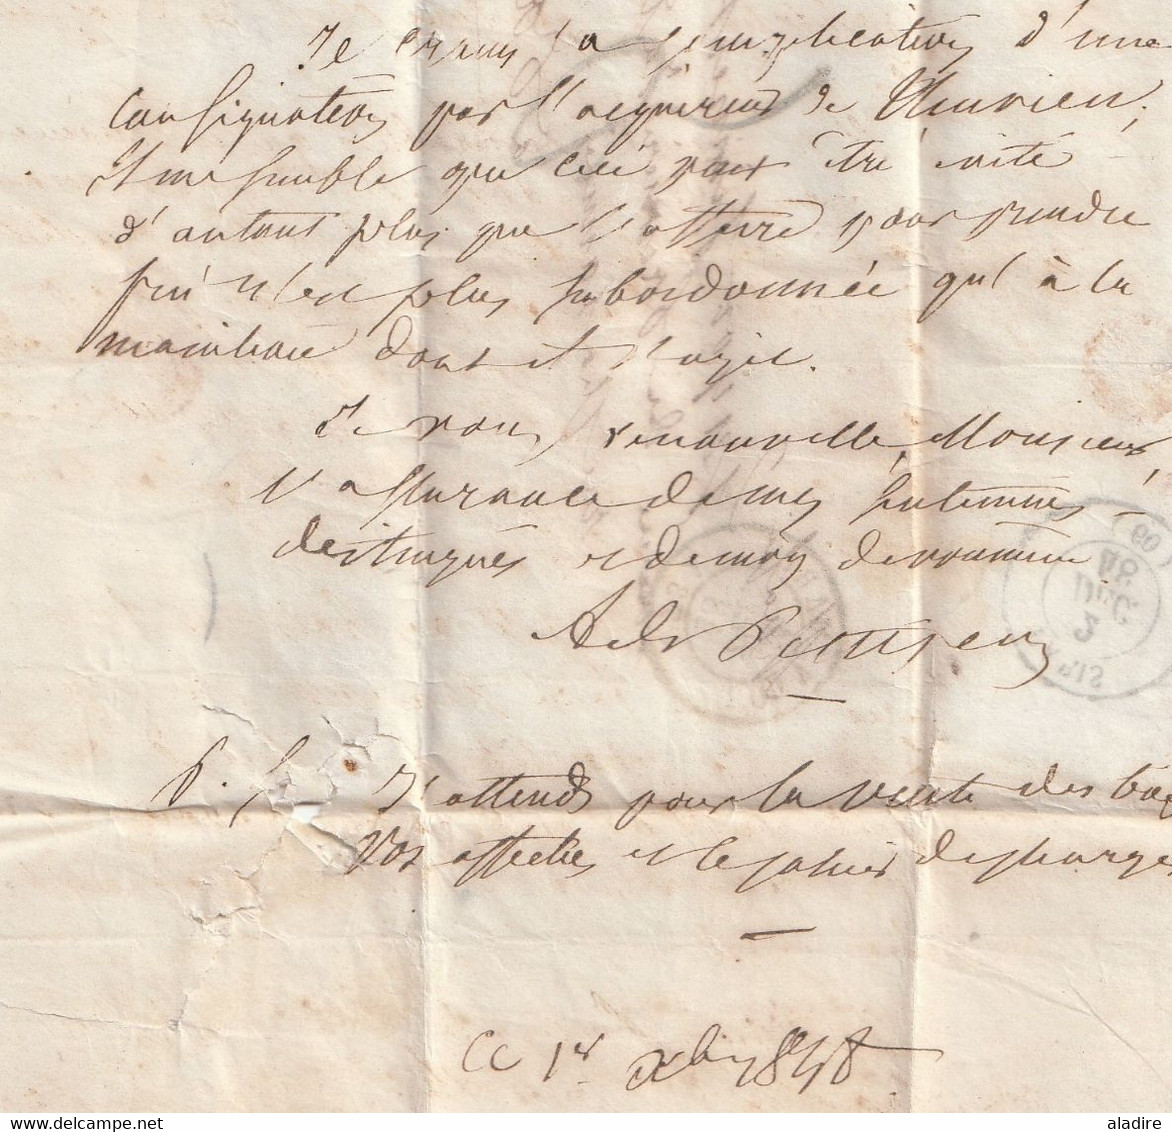 Je crains la complication d'une
consignation par l'acquéreur de
Il me semble que ceci peut être évité
d'autant plus que l'affaire pour prendre
fin n'est plus subordonnée qu'à la
mainlevée dont il s'agit.
Je vous renouvelle, Monsieur,
l'assurance de mes sentiments
distingués et de mon dévouement
P. S. J'attends pour la vente des
vos affiches et le cahier des charges
Ce 1er Xbre 1848
PARIS
5
DEC
48
(60)
delcampe.net
aladire